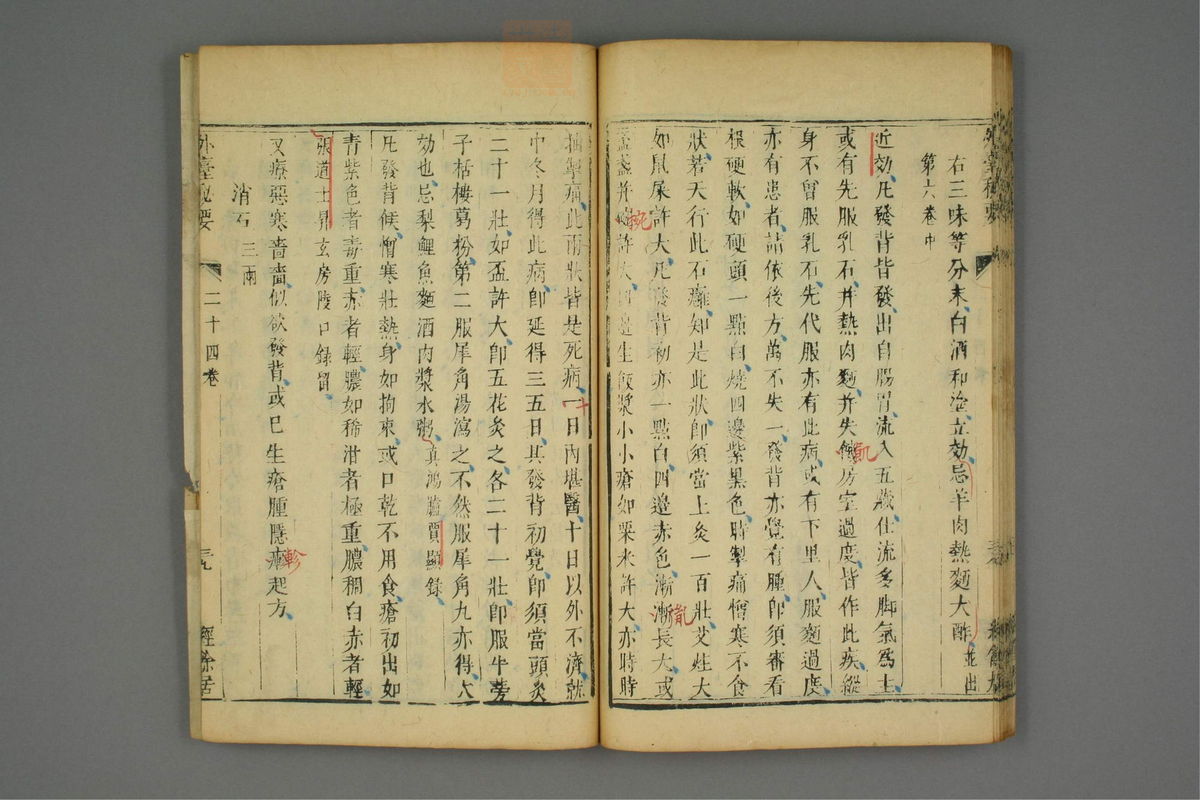 右三味等分末白酒和塗立効忌羊肉熱麵大酢並出
第六卷中
近効凡發背皆發出自腸胃流入五藏仕流多脚氣爲士
或有先服乳石并熱肉麵并失饑房室過度皆作此疾縱
身不曾服乳石先代服亦有此病或有下里人服麵過度
亦有患者請依後方萬不失一發背亦覺有腫卽須審看
根硬軟如硬頭一點白燒四邊紫黑色時掣痛憎寒不食
狀若天行此石癰知是此狀卽須當上灸一百壯艾炷大
如鼠屎許大凡發背初亦一點白四邊赤色漸漸長大或
盞許大四邊生飯漿小小瘡如粟米許大亦時時
抽掣痛此兩狀皆是死病一日內堪醫十日以外不濟就
中冬月得此病卽延得三五日其發背初覺卽須當頭灸
二十一壯如盃許大卽五花灸之各二十一壯卽服牛蒡
子栝樓葛粉第二服犀角湯瀉之不然服犀角丸亦得大
効也忌梨鯉魚麵酒肉漿水粥眞鴻臚賈顯錄
凡發背候憎寒壯熱身如拘束或口乾不用食瘡初出如
青紫色者毒重赤者輕膿如稀泔者極重膿稠白赤者輕
張道士昇玄房陵口錄留
又療惡寒嗇嗇似欲發背或已生瘡腫癮疹起方
消石三兩
外臺秘要
二十四卷
三九
經餘居